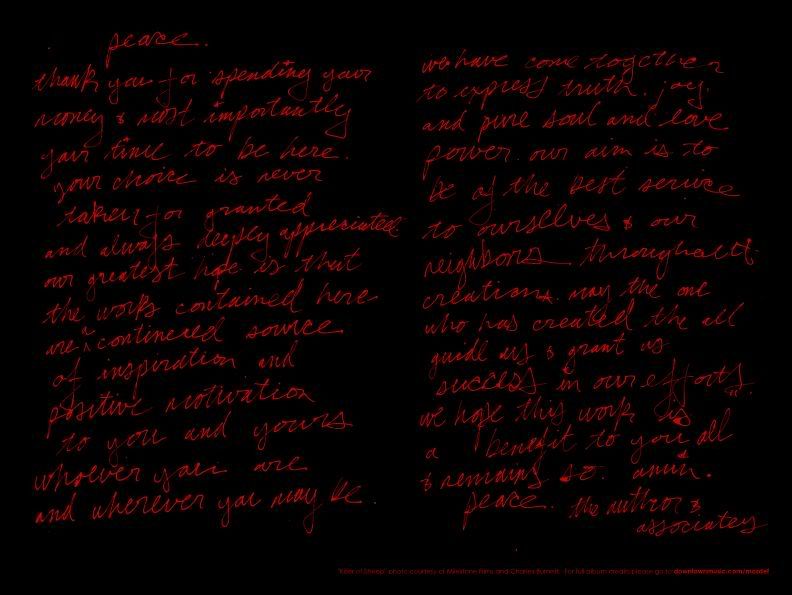 peace.
thank you for spending your
money & most importantly
your time to be here.
your choice is never
taken for granted
and always deeply appreciated.
our greatest hope is that
the works contained here
are a continued source
of inspiration and
positive motivation
to you and yours
whoever you are
and wherever you may be.
we have come together
to express truth. joy.
and pure soul and love
power. our aim is to
be of the best service
to ourselves & our
neighbors throughout
creation. may the one
who has created the all
guide us & grant us
success in our efforts.
we hope this work is
a benefit to you all
& remains so. amin.
peace. the author &
associates
"Killer of Sheep" photo courtesy of Milestone Films and Charles Burnett. For full album credits please go to downtownmusic.com/mosdef